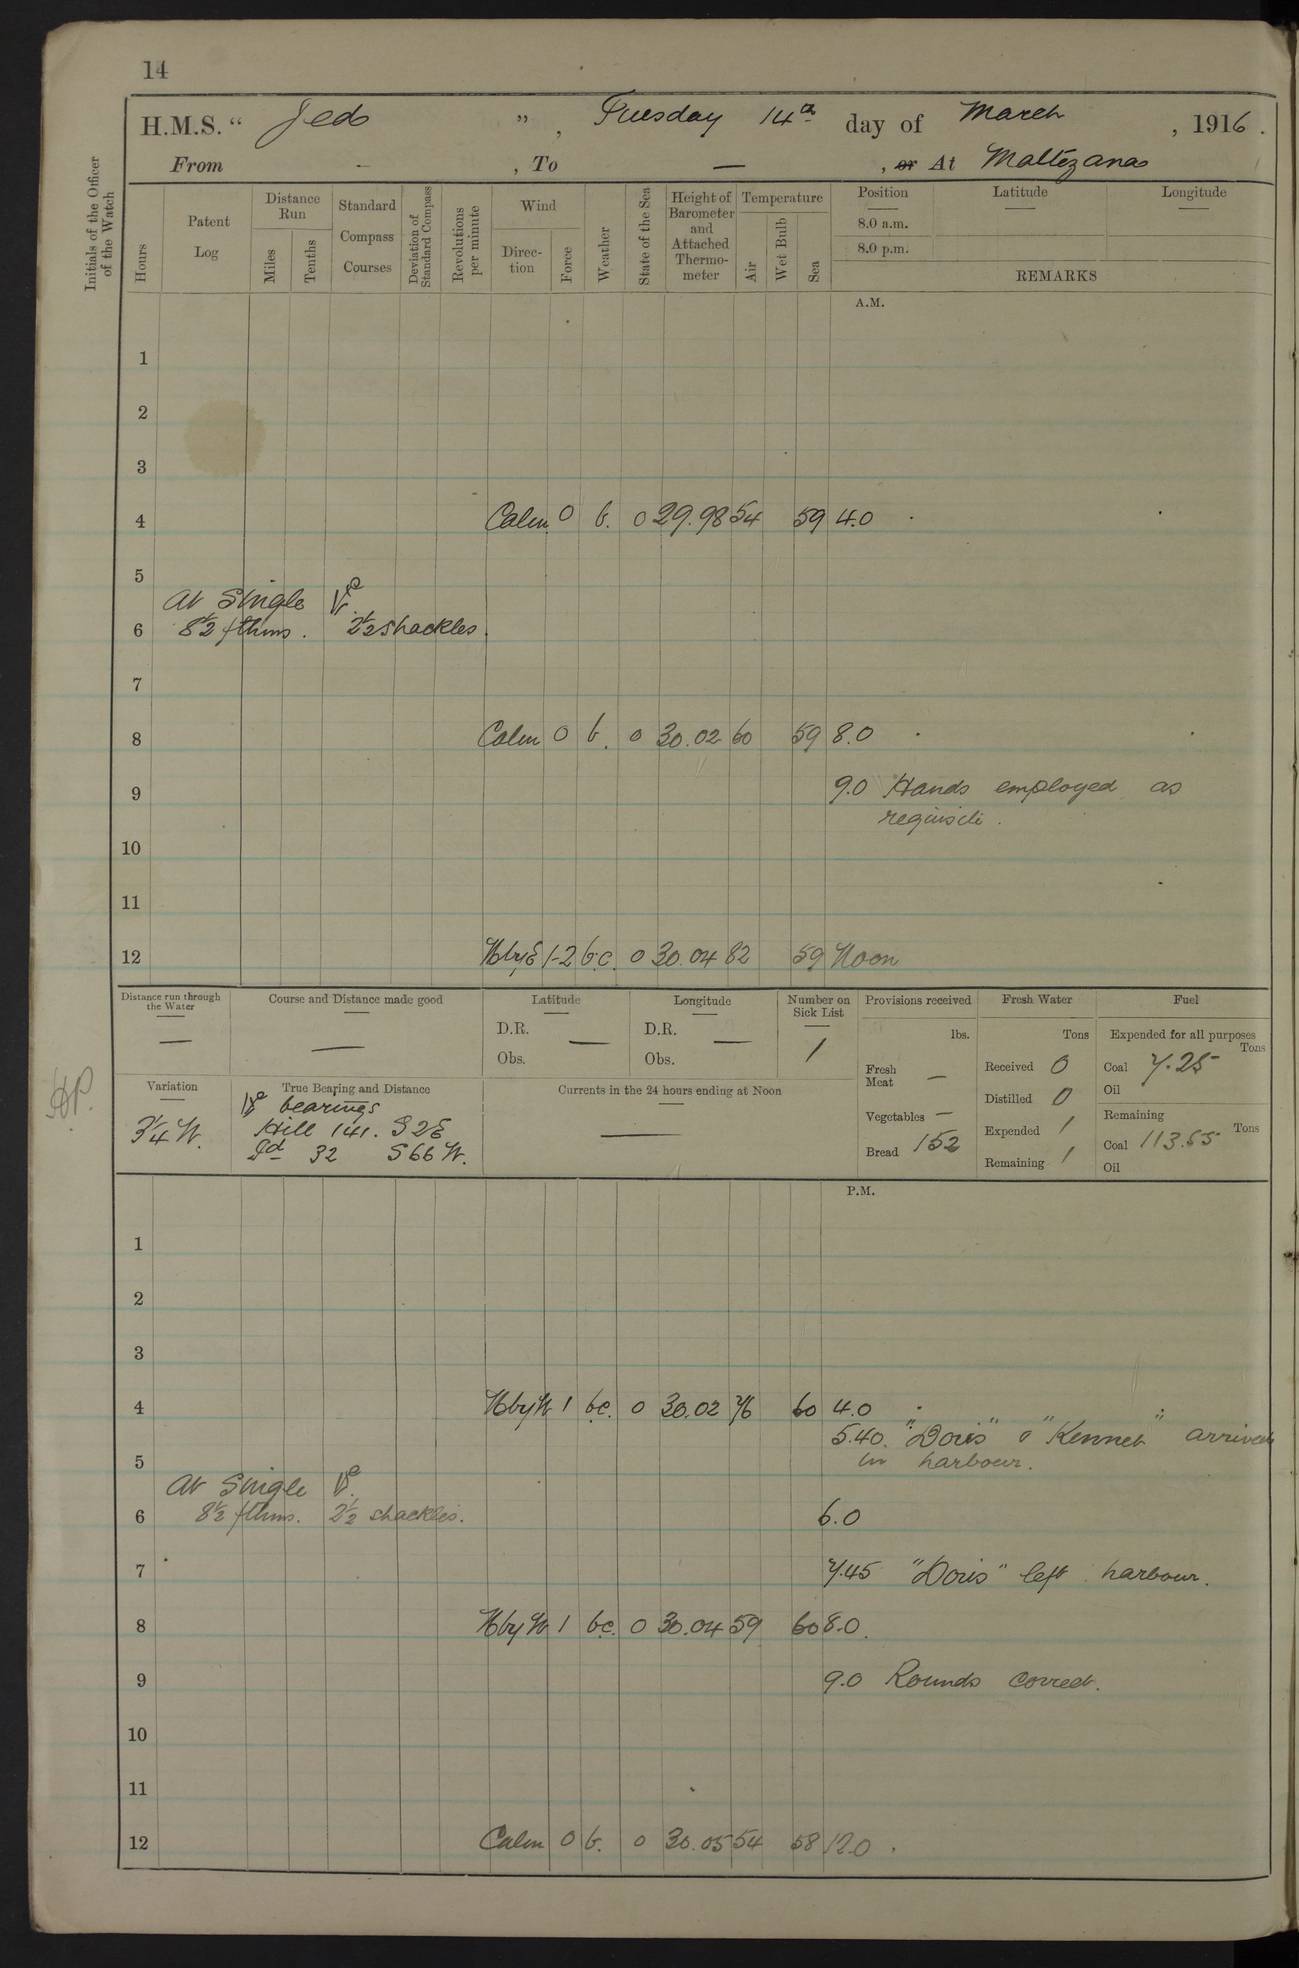 14
H.M.S. " Jed ", Tuesday 14th day of March, 1916.
From - , To — , or At Maltezana
Initials of the Officer of the Watch
Hours
Patent Log
Distance Run
Miles
Tenths
Standard Compass Courses
Deviation of Standard Compass
Revolutions per minute
Wind
Direc-tion
Force
Weather
State of the Sea
Height of Barometer and Attached Thermo-meter
Temperature
Air
Wet Bulb
Sea
Position
8.0 a.m.
8.0 p.m.
Latitude
Longitude
REMARKS
A.M.
1
2
3
4 Calm 0 b. 0 29.98 54 59 4.0
5
At Single
6 8½ fthms. 2½ shackles.
7
8 Calm 0 b. 0 30.02 60 59 8.0
9 9.0 Hands employed as
requisite.
10
11
12 N by E 1-2 b.c. 0 30.04 82 59 Noon
Distance run through the Water
—
Course and Distance made good
—
Latitude
D.R. —
Obs.
Longitude
D.R. —
Obs.
Number on Sick List
1
Provisions received
lbs.
Fresh Meat —
Vegetables —
Bread 152
Fresh Water
Tons
Received 0
Distilled 0
Expended 1
Remaining 1
Fuel
Expended for all purposes
Tons
Coal 7.25
Oil
Remaining
Tons
Coal 113.55
Oil
Variation
3¼ W.
True Bearing and Distance
bearings
Hill 141. S 2 E
Id 32 S 66 W.
Currents in the 24 hours ending at Noon
—
P.M.
1
2
3
4 N by W 1 bc. 0 30.02 76 60 4.0
5.40. "Doris" & "Kennet" arrived
5 in harbour.
At Single
6 8½ fthms. 2½ shackles. 6.0
7 7.45 "Doris" left harbour.
8 N by W 1 bc. 0 30.04 59 60 8.0.
9 9.0 Rounds correct.
10
11
12 Calm 0 b. 0 30.05 54 58 12.0